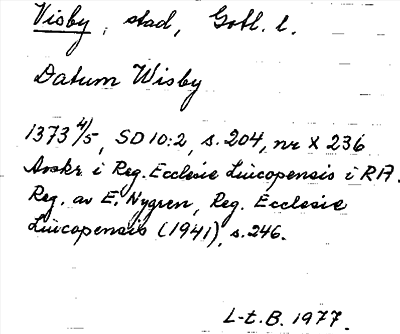 Visby, stad, Gotl. l.
Datum Wisby
1373 4/5, SD 10:2, s. 204, nr X 236
Avskr. i Reg. Ecclesie Lincopensis i RA.
Reg. av E. Nygren, Reg. Ecclesie
Lincopensis (1941), s. 246.
L-t. B. 1977.